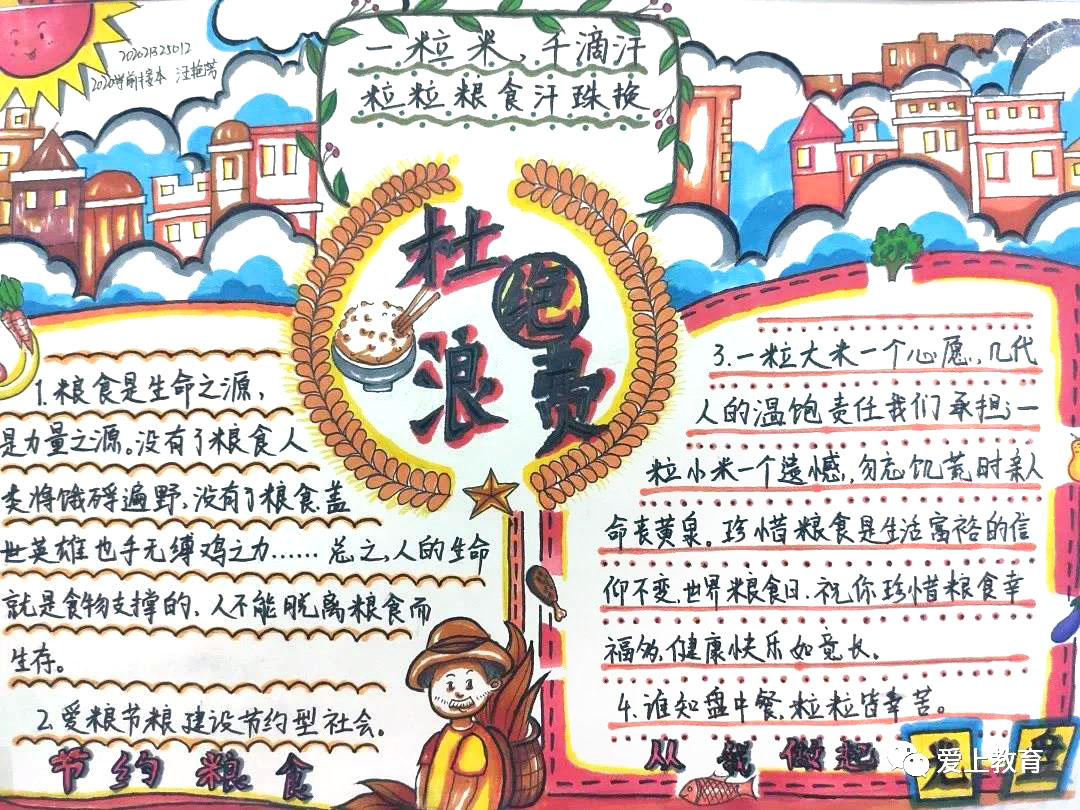 20202325012
2020学前接本 汪艳芳
一粒米,千滴汗
粒粒粮食汗珠换
杜绝
浪费
1.粮食是生命之源,
是力量之源。没有了粮食人
类将饿殍遍野,没有了粮食盖
世英雄也手无缚鸡之力……总之,人的生命
就是食物支撑的、人不能脱离粮食而
生存。
2.爱粮节粮建设节约型社会。
节约粮食
3.一粒大米一个心愿,几代
人的温饱责任我们承担;一
粒小米一个遗憾,勿忘饥荒,时亲人
命丧黄泉。珍惜粮食是生活富裕的信
仰不变,世界粮食日,祝你珍惜粮食幸
福多,健康快乐如竟长。
4.谁知盘中餐,粒粒皆辛苦。
从我做起
爱上教育